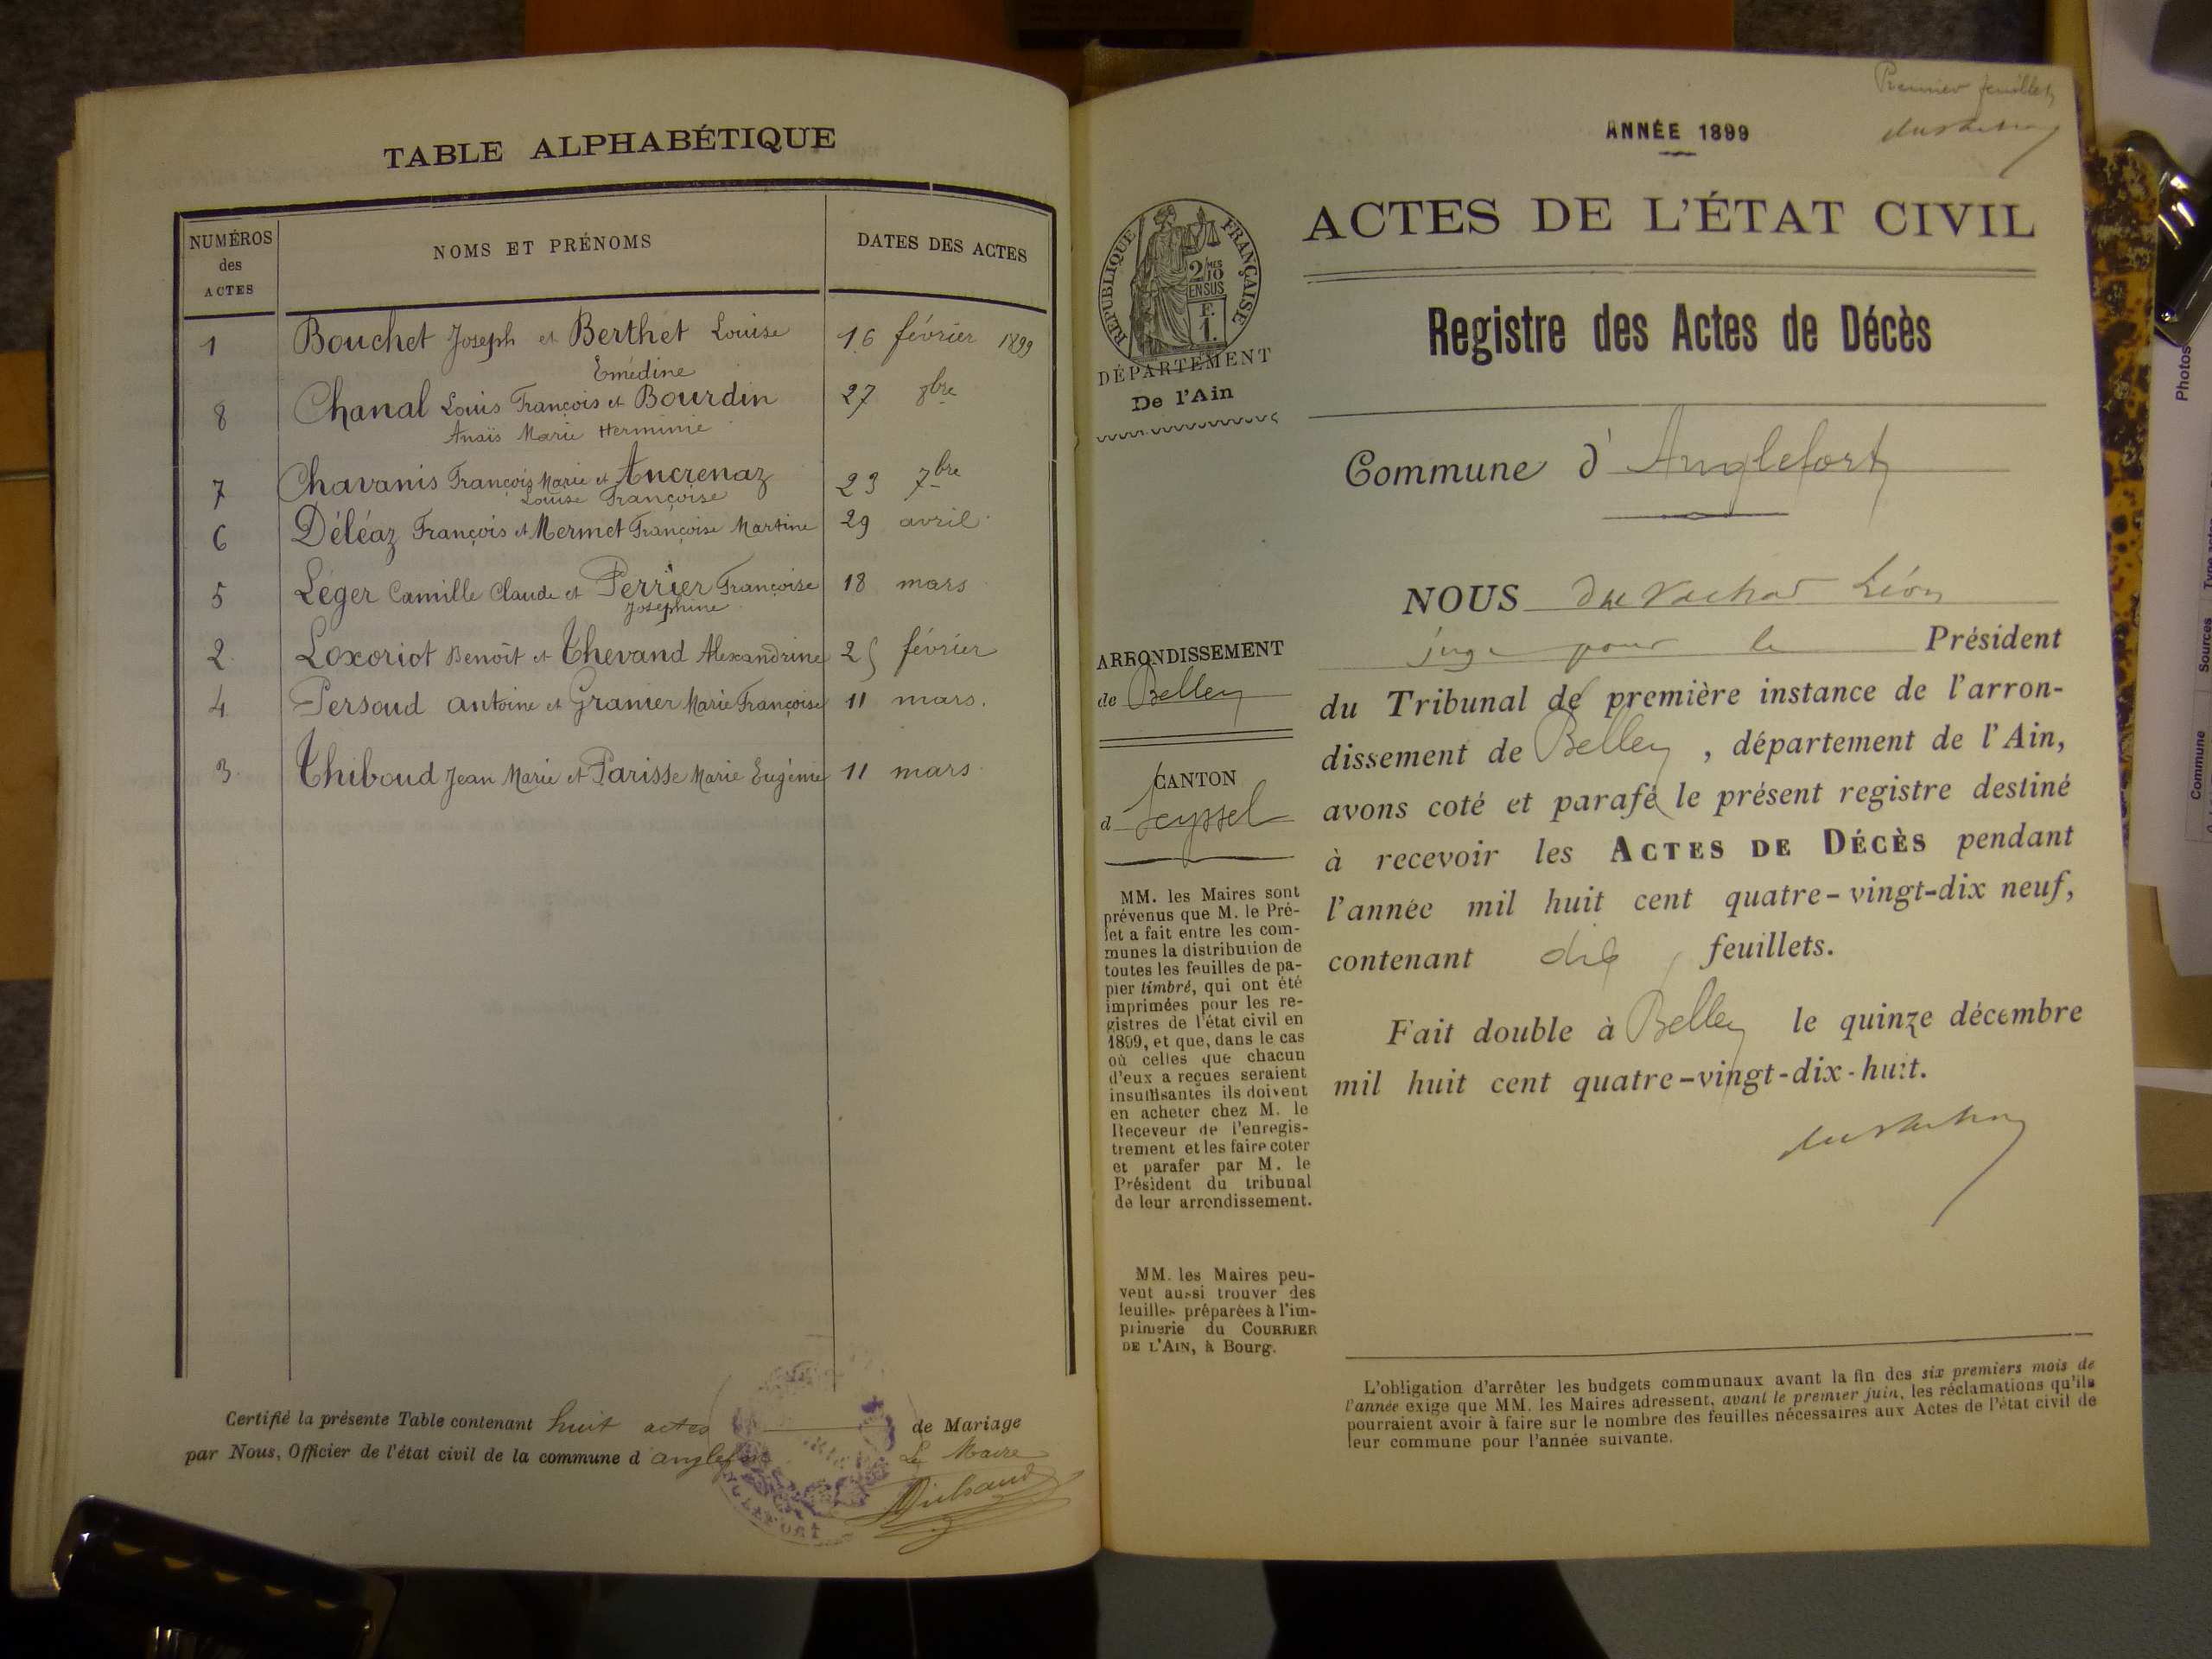 TABLE ALPHABÉTIQUE
NUMÉROS
des
ACTES
NOMS ET PRÉNOMS
DATES DES ACTES
1 Bouchet Joseph et Berthet Louise 16 février 1899
Emédine
8 Chanal Louis François et Bourdin 27 8bre
Anaïs Marie Herminie
7 Chavanis François Marie et Ancrenaz 23 7bre
Louise Françoise
6 Déléaz François et Mermet Françoise Martine 29 avril
5 Léger Camille Claude et Perrier Françoise 18 mars
Josephine
2 Loxoriot Benoît et Thevand Alexandrine 25 février
4 Persoud Antoine et Granier Marie Françoise 11 mars.
3 Thiboud Jean Marie et Parisse Marie Eugénie 11 mars
Certifié la présente Table contenant huit actes de Mariage
par Nous, Officier de l'état civil de la commune d'anglefort
Le Maire
Premier feuillet
ANNÉE 1899
RÉPUBLIQUE FRANÇAISE
2/10MES
EN SUS
F.
1.
DÉPARTEMENT
De l'Ain
ACTES DE L'ÉTAT CIVIL
Registre des Actes de Décès
Commune d'Anglefort
ARRONDISSEMENT
de Belley
CANTON
d Seyssel
MM. les Maires sont
prévenus que M. le Pré-
fet a fait entre les com-
munes la distribution de
toutes les feuilles de pa-
pier timbré, qui ont été
imprimées pour les re-
gistres de l'état civil en
1899, et que, dans le cas
où celles que chacun
d'eux a reçues seraient
insuffisantes ils doivent
en acheter chez M. le
Receveur de l'enregis-
trement et les faire coter
et parafer par M. le
Président du tribunal
de leur arrondissement.
MM. les Maires peu-
vent aussi trouver des
feuilles préparées à l'im-
primerie du COURRIER
DE L'AIN, à Bourg.
NOUS Léon
juge pour le Président
du Tribunal de première instance de l'arron-
dissement de Belley, département de l'Ain,
avons coté et parafé le présent registre destiné
à recevoir les ACTES DE DÉCÈS pendant
l'année mil huit cent quatre-vingt-dix neuf,
contenant dix feuillets.
Fait double à Belley le quinze décembre
mil huit cent quatre-vingt-dix-huit.
L'obligation d'arrêter les budgets communaux avant la fin des six premiers mois de
l'année exige que MM. les Maires adressent, avant le premier juin, les réclamations qu'ils
pourraient avoir à faire sur le nombre des feuilles nécessaires aux Actes de l'état civil de
leur commune pour l'année suivante.
Photos
Sources
Commune